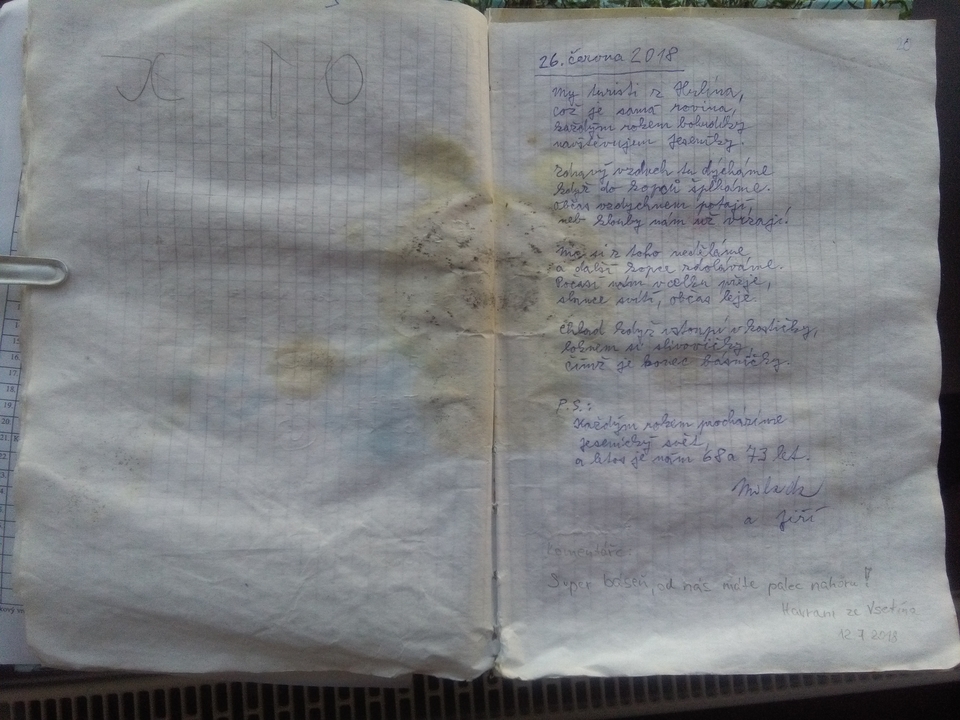 K T O
26. června 2018
My turisti z Hulína,
což je samá rovina,
každým rokem bohudíky
navštěvujem Jeseníky.
Zdravý vzduch tu dýcháme
když do kopců šplháme.
Občas vzdychnem potají
nebo klouby nám už vrzají.
My si z toho neděláme
a další kopce zdoláváme.
Počasí nám vcelku přeje,
slunce svítí, občas leje.
Chlad když vstoupí v kostičky,
loknem si slivovičky,
čímž je konec básničky.
P.S.:
Každým rokem procházíme
jesenický svět,
a letos je nám 68 a 73 let.
Milada
a Jiří
Komentáře:
Super báseň, od nás máte palec nahoru!
Havrani ze Vsetína
12 7 2018